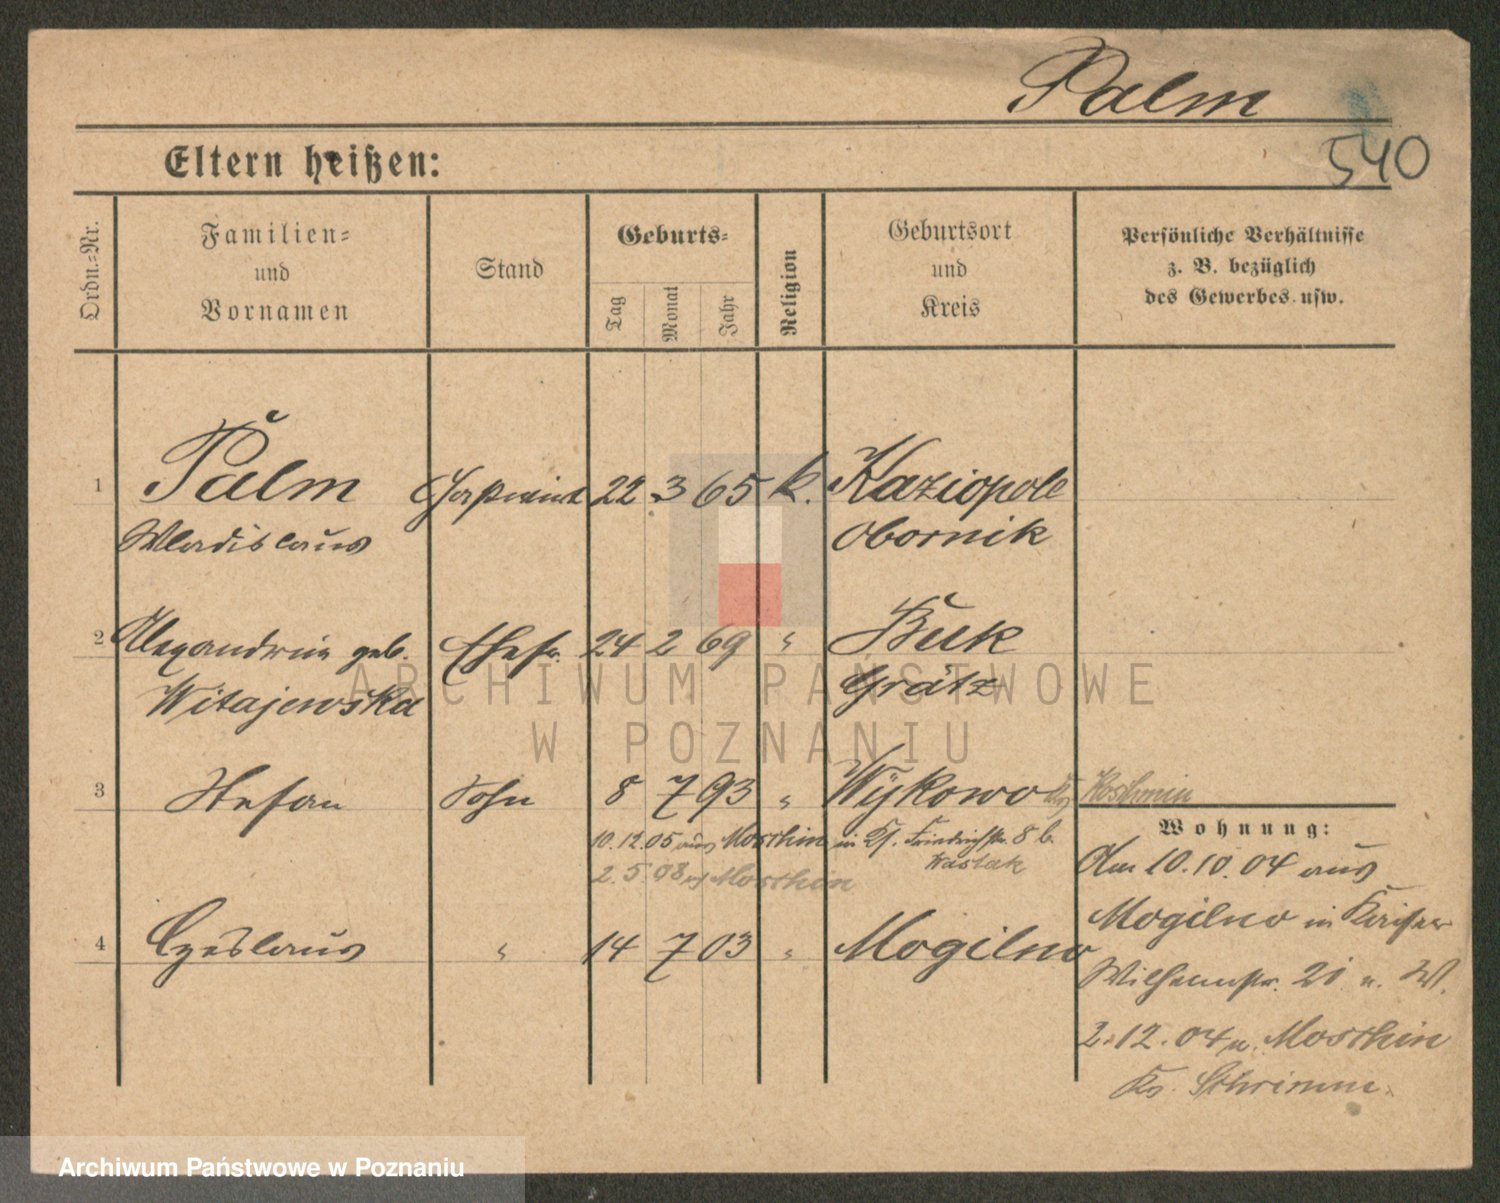 Palm
540
Eltern heißen:
Ordn.-Nr.
Familien-
und
Vornamen
Stand
Geburts-
Tag
Monat
Jahr
Religion
Geburtsort
und
Kreis
Persönliche Verhältnisse
z. B. bezüglich
des Gewerbes usw.
1 Palm Gastwirt 22 3 65 k. Kaziopole
Wladislaus Obornik
2 Alexandrine geb. Ehefr. 24 2 69 " Buk
Witajewska Grätz
3 Stefan Sohn 8 7 93 " Wykowo Koschmin
10.12.05 aus Moschin in Friedrichstr. 8 b.
2.5.08 Moschin
4 Czeslaus " 14 7 03 " Mogilno
Wohnung:
Am 10.10.04 aus
Mogilno in Kaiser
Wilhelmstr. 21 n. W.
2.12.04 n. Moschin
Kr. Schrimm.
ARCHIWUM PAŃSTWOWE
W POZNANIU
Archiwum Państwowe w Poznaniu